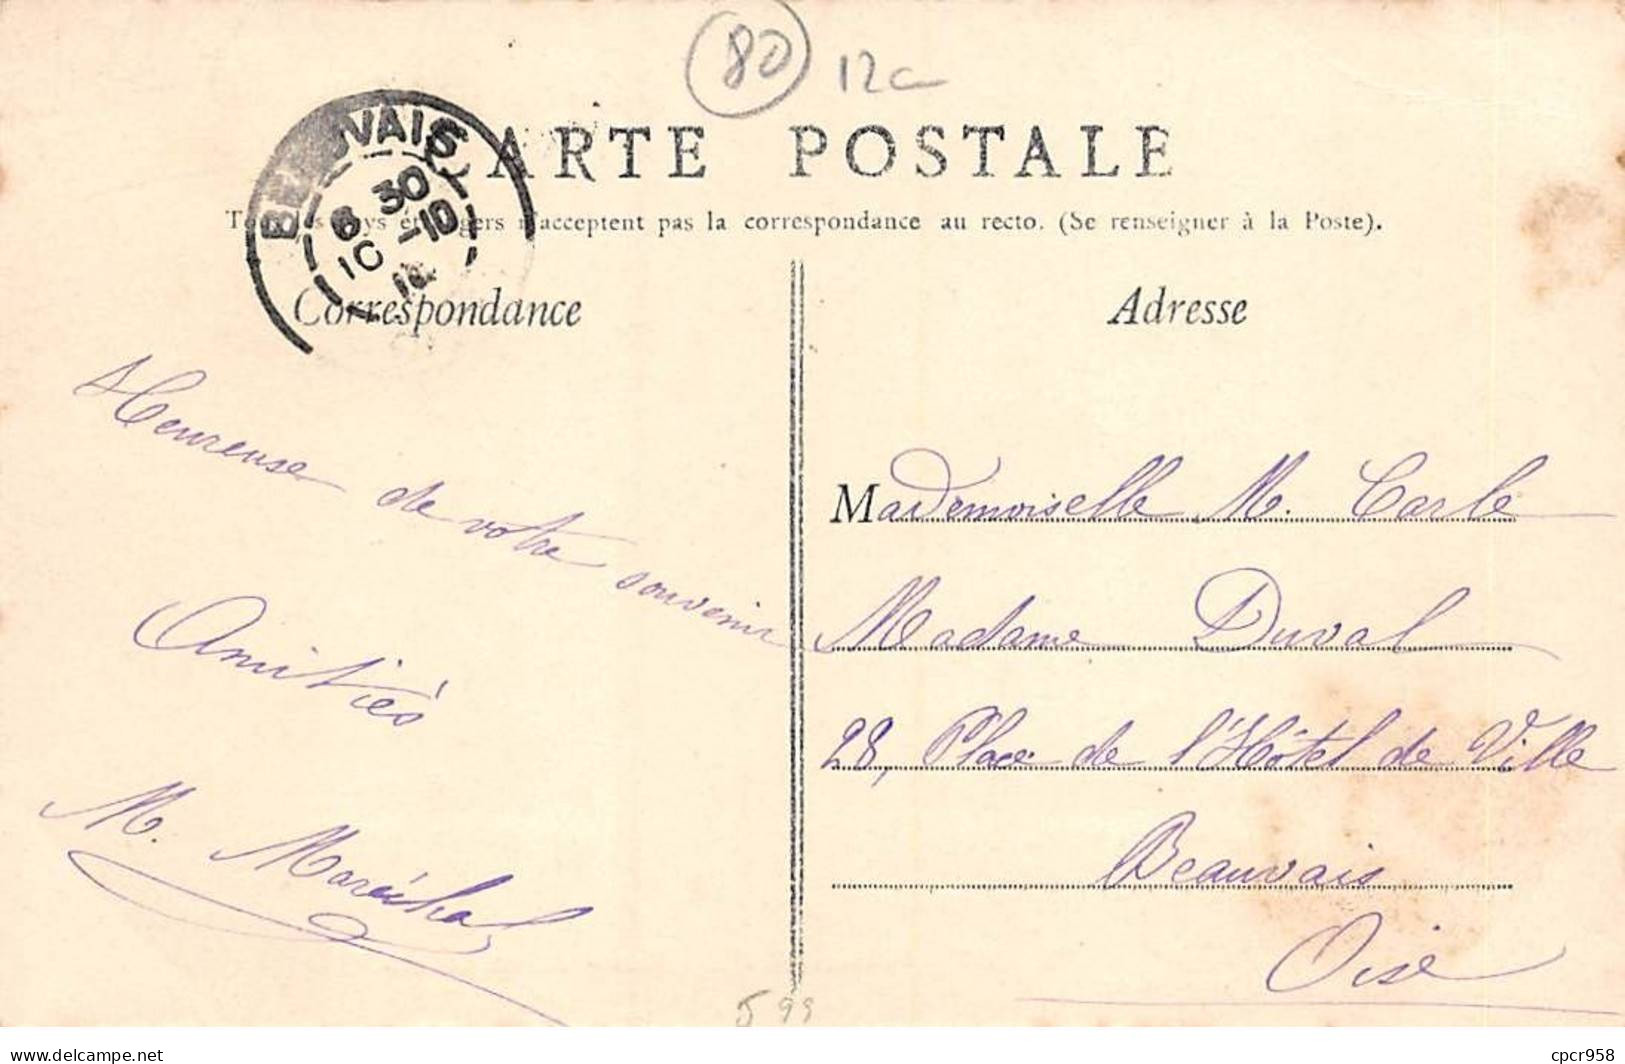 80
12
CARTE POSTALE
BEAUVAIS
8 30
10 -10
Tous les pays étrangers n'acceptent pas la correspondance au recto. (Se renseigner à la Poste).
Correspondance
Adresse
Heureuse de votre souvenir
Amitiés
M. Maréchal
Mademoiselle M. Carle
Madame Duval
28, Place de l'Hôtel de Ville
Beauvais
Oise
599
delcampe.net
cpcr958